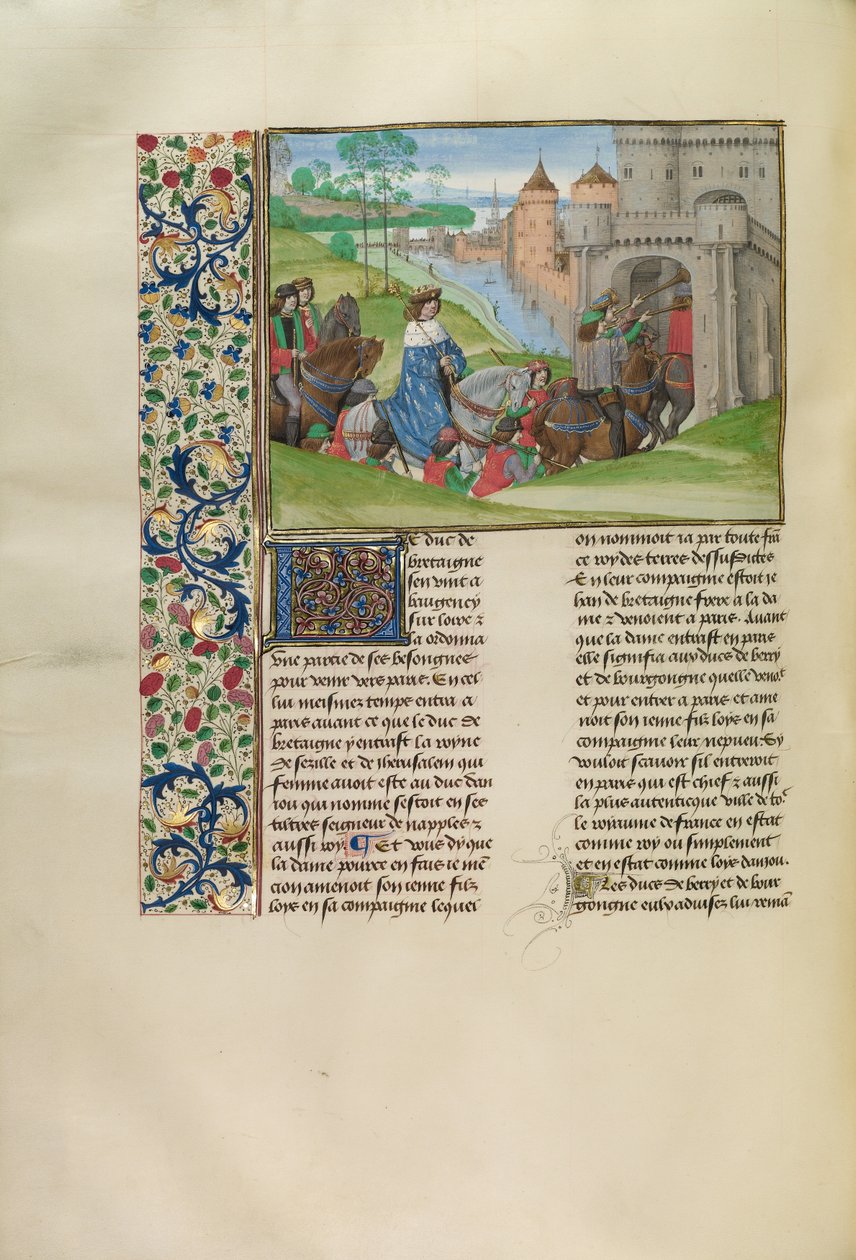 Le duc de
bretaigne
sen vint a
baugency
sur loire &
la ordonna
vne partie de ses besongnes
pour venir vers paris. En cel
lui meismez temps entra a
paris auant ce que le duc de
bretaigne y entrast la royne
de sezille et de jherusalem qui
femme auoit este au duc dan
iou qui nomme sestoit en ses
tiltres seigneur de napples &
aussi roy. Et vous dy que
la dame pource en fais ie mē
cion amenoit son ienne filz
loys en sa compaignie lequel
on nommoit ia par toute frā
ce roy des terres dessusdictes
En leur compaignie estoit je
han de bretaigne frere a la da
me & venoient a paris. Auant
que la dame entrast en paris
elle signifia aux ducs de berry
et de bourgongne quelle venoit
et pour entrer a paris et ame
noit son ienne filz loys en sa
compaignie leur nepueu. Sy
vouloit scauoir sil entreroit
en paris qui est chief & aussi
la plus autenticque ville de to9
le royaume de france en estat
comme roy ou simplement
et en estat comme loys daniou.
Les ducs de berry et de bour
gongne eulx aduisez lui remā